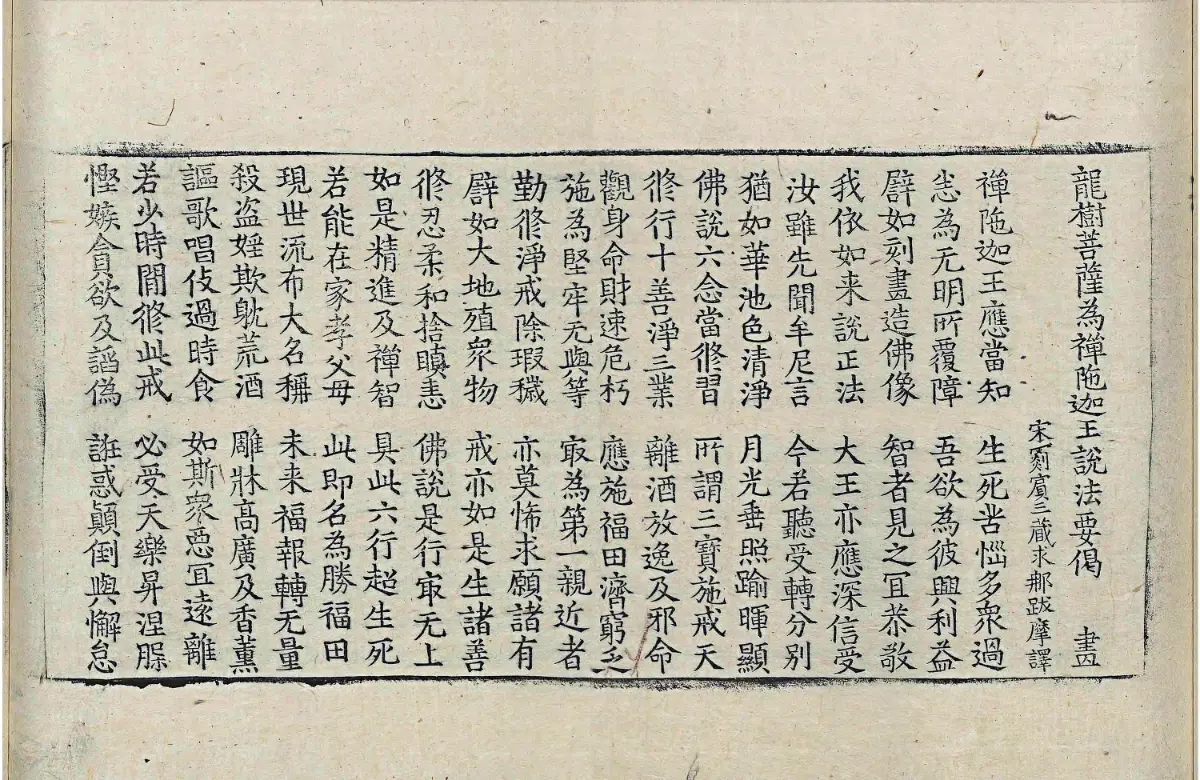 龍樹菩薩為禪陁迦王說法要偈 畫
宋罽賓三藏求那跋摩譯
禪陁迦王應當知 生死苦惱多衆過
悉為无明所覆障 吾欲為彼興利益
譬如刻畫造佛像 智者見之冝恭敬
我依如来說正法 大王亦應深信受
汝雖先聞牟尼言 今若聽受轉分別
猶如華池色清淨 月光垂照踰暉顯
佛說六念當修習 所謂三寶施戒天
修行十善淨三業 離酒放逸及邪命
觀身命財速危朽 應施福田濟窮乏
施為堅牢无與等 冣為第一親近者
勤修淨戒除瑕穢 亦莫悕求願諸有
譬如大地殖衆物 戒亦如是生諸善
修忍柔和捨瞋恚 佛說是行冣无上
如是精進及禪智 具此六行超生死
若能在家孝父母 此即名為勝福田
現世流布大名稱 未来福報轉无量
殺盜婬欺躭荒酒 雕牀高廣及香薰
謳歌唱伎過時食 如斯衆惡冝遠離
若少時間修此戒 必受天樂昇涅槃
慳嫉貪欲及諂偽 誑惑顛倒與懈怠